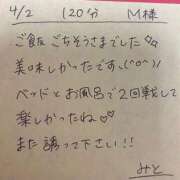 4/2 120分 M様
ご飯 ごちそうさまでした♡♡
美味しかったです、(^o^)/
ベッドとお風呂で2回戦して
楽しかったね♡♡
また誘って下さい!!
みと